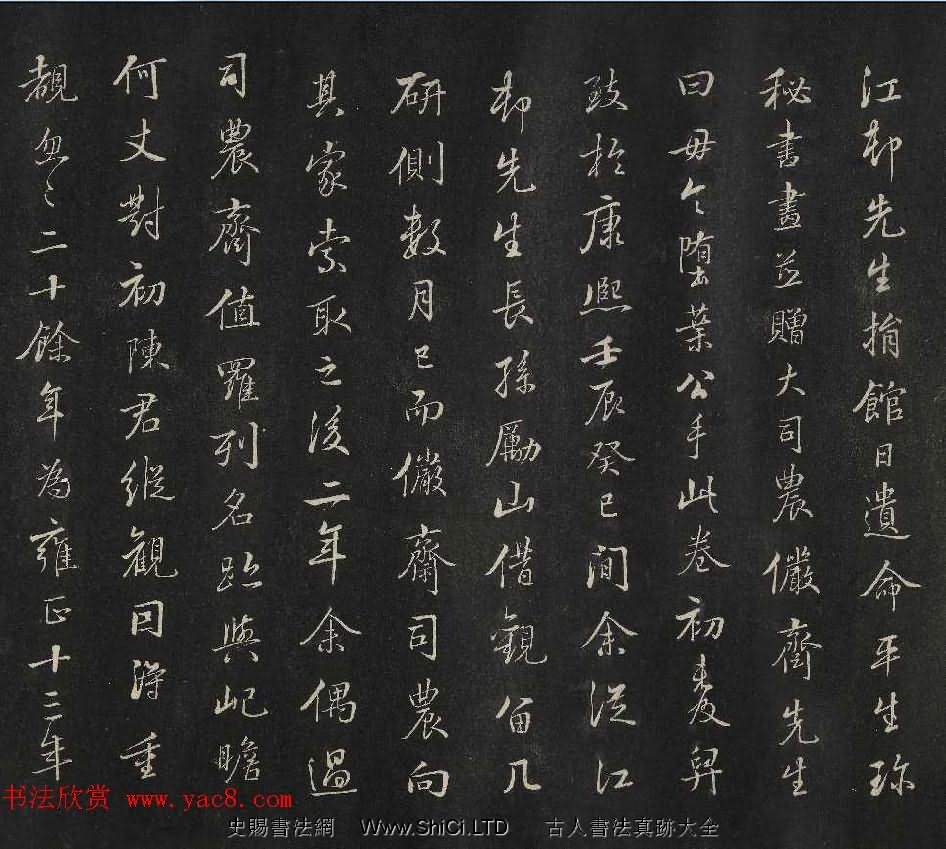 江邨先生捐館日遺命平生珎
秘書畫並贈大司農儼齋先生
曰毋令墮葉公手此卷初未畀
致於康熙壬辰癸巳間余從江
邨先生長孫勵山借觀留几
研側數月已而儼齋司農向
其家索取之後二年余偶過
司農齋值羅列名跡與屺瞻
何丈對初陳君縱觀因得重
覩忽〻二十餘年為雍正十三年
书法欣赏 www.yac8.com
史賜書法網 Www.ShiCi.LTD 古人書法真跡大全